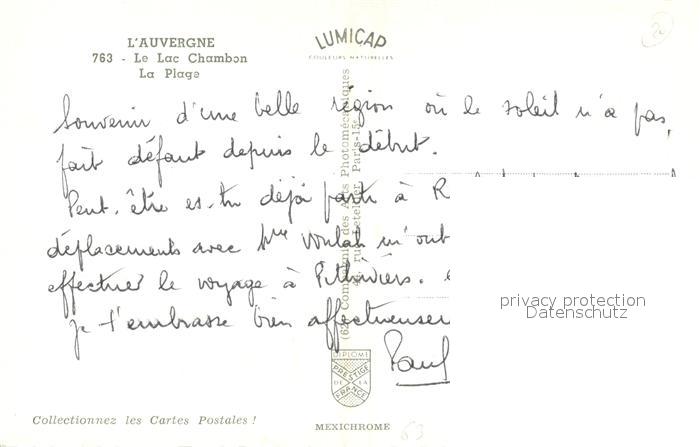 L'AUVERGNE
763 - Le Lac Chambon
La Plage
LUMICAP
COULEURS NATURELLES
Souvenir d'une belle région où le soleil n'a pas
fait défaut depuis le début.
Peut-être es-tu déjà parti à R
déplacements avec Mme m'ont
effectuer le voyage à Pithiviers.
je t'embrasse bien affectueusem
Paul
des Arts Photomécaniques
Paris-15e
privacy protection
Datenschutz
DIPLOME
PRESTIGE
DE LA
FRANCE
Collectionnez les Cartes Postales !
MEXICHROME
63